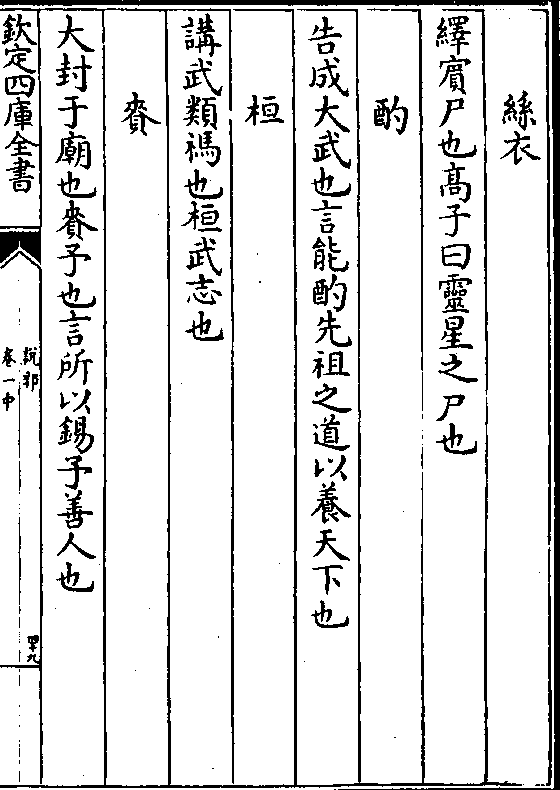 絲衣
繹賓尸也髙子曰靈星之尸也
酌
告成大武也言能酌先祖之道以養天下也
桓
講武類禡也桓武志也
賚
大封于廟也賚予也言所以錫予善人也
欽定四庫全書
說郛
卷一中
四十九